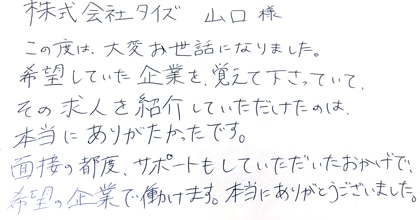 株式会社タイズ 山口様
この度は、大変お世話になりました。
希望していた企業を、覚えて下さっていて、
その求人を紹介していただけたのは、
本当にありがたかったです。
面接の都度、サポートもしていただいたおかげで、
希望の企業で働けます。本当にありがとうございました。